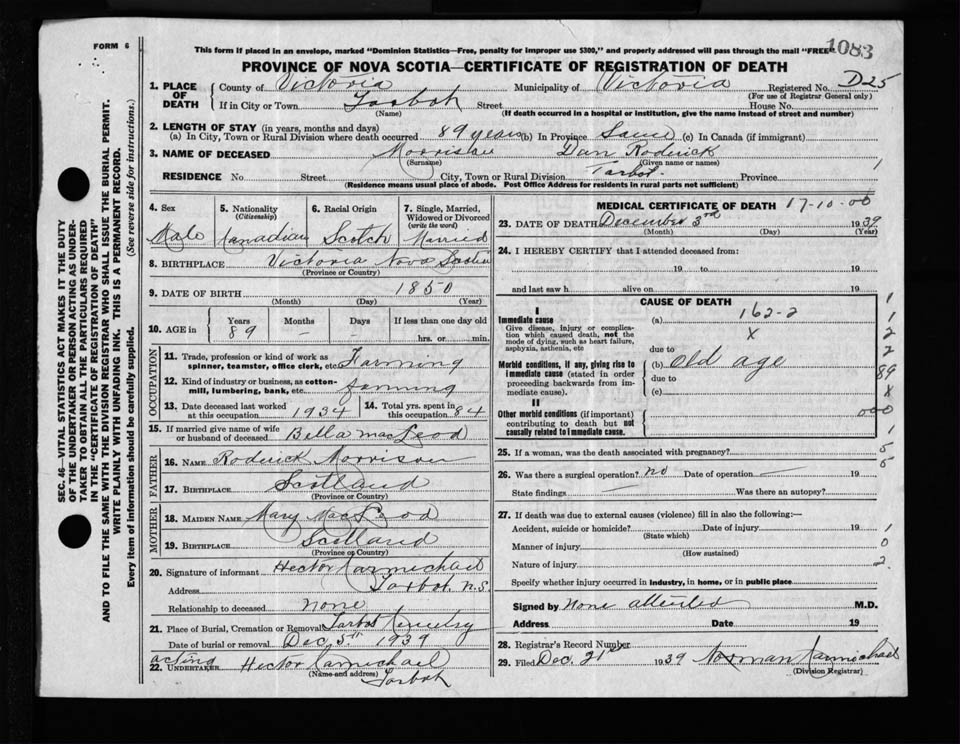 FORM 6
1083
This form if placed in an envelope, marked "Dominion Statistics—Free, penalty for improper use $300," and properly addressed will pass through the mail "FREE"
PROVINCE OF NOVA SCOTIA—CERTIFICATE OF REGISTRATION OF DEATH
1. PLACE OF DEATH County of Victoria Municipality of Victoria Registered No. D25
(For use of Registrar General only)
If in City or Town Tarbot Street House No.
(Name) (If death occurred in a hospital or institution, give the name instead of street and number)
2. LENGTH OF STAY (in years, months and days)
(a) In City, Town or Rural Division where death occurred 89 years (b) In Province Same (c) In Canada (if immigrant)
3. NAME OF DECEASED Morrison Dan Roderick
(Surname) (Given name or names)
RESIDENCE No. Street City, Town or Rural Division Tarbot. Province 1
(Residence means usual place of abode. Post Office Address for residents in rural parts not sufficient)
4. Sex Male
5. Nationality (Citizenship) Canadian
6. Racial Origin Scotch
7. Single, Married, Widowed or Divorced (write the word) Married
8. BIRTHPLACE Victoria Nova Scotia
(Province or Country)
9. DATE OF BIRTH 1850
(Month) (Day) (Year)
10. AGE in Years 89 Months – Days If less than one day old hrs. or min.
OCCUPATION
11. Trade, profession or kind of work as spinner, teamster, office clerk, etc. Farming
12. Kind of industry or business, as cotton-mill, lumbering, bank, etc. farming
13. Date deceased last worked at this occupation 1934
14. Total yrs. spent in this occupation 84
15. If married give name of wife or husband of deceased Bella MacLeod
FATHER
16. NAME Roderick Morrison
17. BIRTHPLACE Scotland
(Province or Country)
MOTHER
18. MAIDEN NAME Mary MacLeod
19. BIRTHPLACE Scotland
(Province or Country)
20. Signature of informant Hector Carmichael
Address Tarbot. N.S.
Relationship to deceased none
21. Place of Burial, Cremation or Removal Tarbot Cemetery
Date of burial or removal Dec 5th 1939
acting
22. UNDERTAKER Hector Carmichael
(Name and address) Tarbot
MEDICAL CERTIFICATE OF DEATH 17-10-00
23. DATE OF DEATH December 3rd 1939
(Month) (Day) (Year)
24. I HEREBY CERTIFY that I attended deceased from:
19 to 19
and last saw h alive on 19
CAUSE OF DEATH
I
Immediate cause
Give disease, injury or complication which caused death, not the mode of dying, such as heart failure, asphyxia, asthenia, etc
(a) 162-2
x
due to
Morbid conditions, if any, giving rise to immediate cause (stated in order proceeding backwards from immediate cause).
(b) old age
due to
(c)
II
Other morbid conditions (if important) contributing to death but not causally related to immediate cause.
1
1
2
2
89
x
000
1
5
25. If a woman, was the death associated with pregnancy?
26. Was there a surgical operation? no Date of operation — 19
State findings — Was there an autopsy?
27. If death was due to external causes (violence) fill in also the following:—
Accident, suicide or homicide? Date of injury 19 1
(State which)
Manner of injury 0
(How sustained)
Nature of injury 2
Specify whether injury occurred in industry, in home, or in public place
Signed by None attended M.D.
Address Date 19
28. Registrar's Record Number
29. Filed Dec. 21st 1939 Norman Carmichael
(Division Registrar)
SEC. 46—VITAL STATISTICS ACT MAKES IT THE DUTY
OF THE UNDERTAKER OR PERSON ACTING AS UNDER-
TAKER TO OBTAIN ALL THE PARTICULARS REQUIRED
IN THE "CERTIFICATE OF REGISTRATION OF DEATH"
AND TO FILE THE SAME WITH THE DIVISION REGISTRAR WHO SHALL ISSUE THE BURIAL PERMIT.
WRITE PLAINLY WITH UNFADING INK. THIS IS A PERMANENT RECORD.
Every item of information should be carefully supplied. (See reverse side for instructions.)